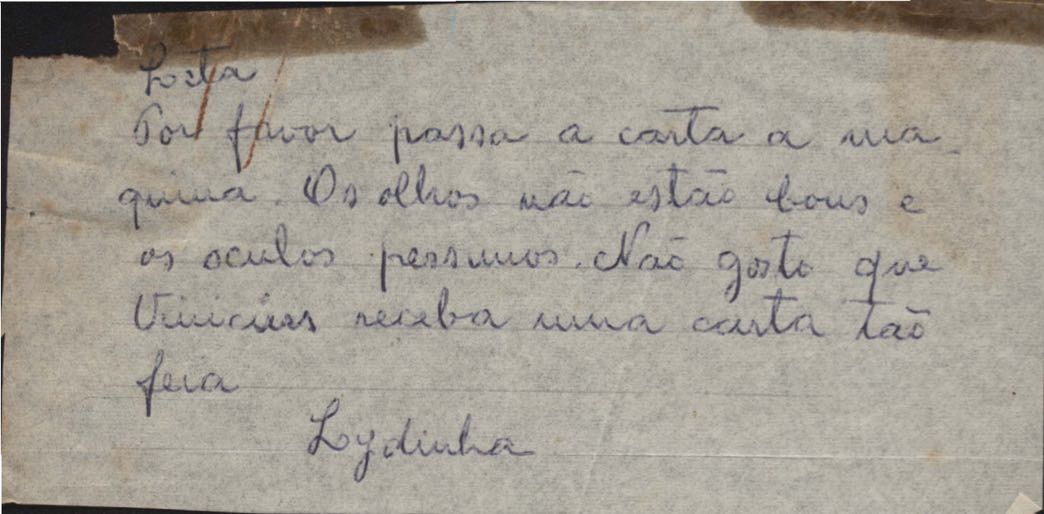 Loeta
Por favor passa a carta a ma-
quina. Os olhos não estão bons e
os oculos pessimos. Não gosto que
Vinicius receba uma carta tão
feia
Lydinha